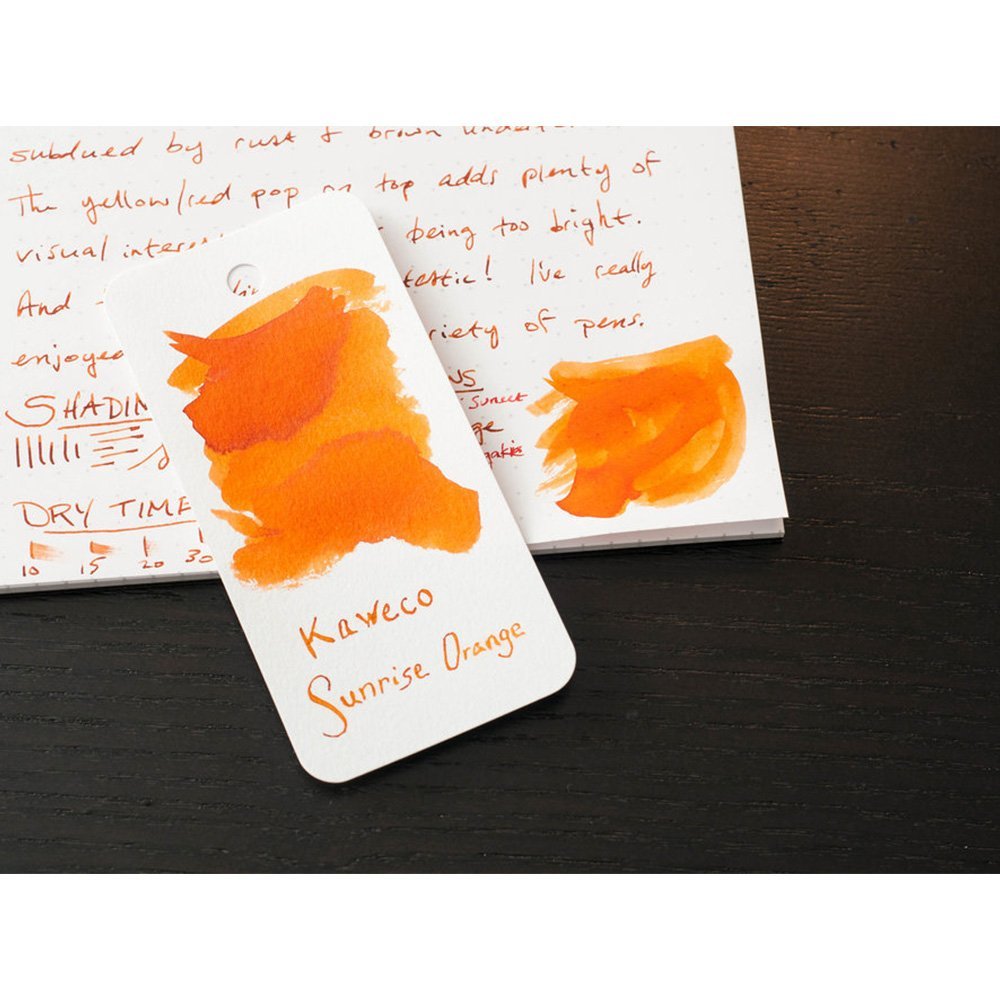 subdued by rust & brown
The yellow/red pop on top adds plenty of
visual being too bright.
And I've really
enjoyed of pens.
SHADIN
Sunset
DRY TIME
10 15 20 30
Kaweco
Sunrise Orange